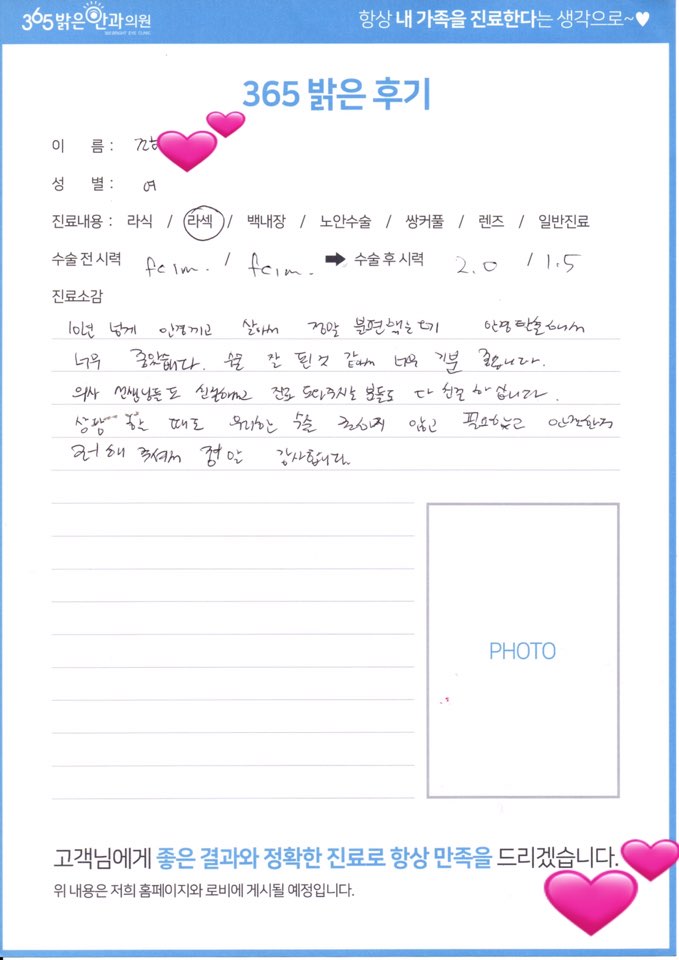 365 밝은안과의원
365 BRIGHT EYE CLINIC
항상 내 가족을 진료한다는 생각으로~♥
365 밝은 후기
이 름 :
성 별 : 여
진료내용 : 라식 / 라섹 / 백내장 / 노안수술 / 쌍커풀 / 렌즈 / 일반진료
수술 전 시력 fc1m. / fc1m. ➡ 수술 후 시력 2.0 / 1.5
진료소감
10년 넘게 안경끼고 살아서 정말 불편했는데 안경탈출해서
너무 좋았습니다. 수술 잘 된것 같아서 너무 기분 좋습니다.
의사 선생님들도 친절하시고 진료 도와주시는 분들도 다 친절하십니다.
상담 할 때도 무리한 수술 권하지 않고 필요하고 안전한거
권해 주셔서 정말 감사합니다.
PHOTO
고객님에게 좋은 결과와 정확한 진료로 항상 만족을 드리겠습니다.
위 내용은 저희 홈페이지와 로비에 게시될 예정입니다.